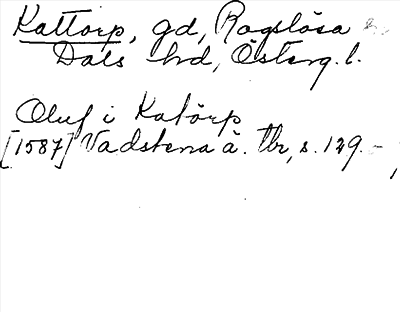 Kattorp, gd, Rogslösa
Dals hd, Österg. l.
Oluf i Katörp
[1587] Vadstena ä. tbr, s. 129.